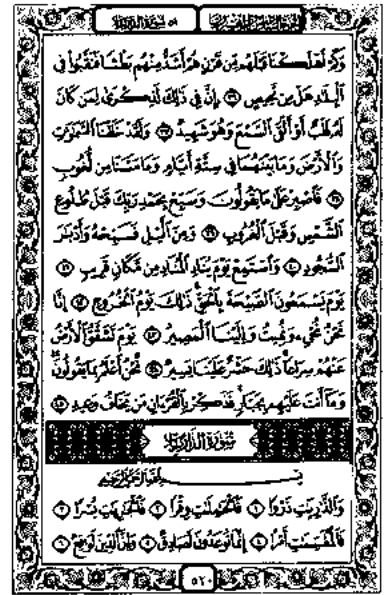 الجزء السادس والعشرون
٥١ سورة الذاريات
وَكَمْ أَهْلَكْنَا قَبْلَهُم مِّن قَرْنٍ هُمْ أَشَدُّ مِنْهُم بَطْشًا فَنَقَّبُوا۟ فِى
ٱلْبِلَٰدِ هَلْ مِن مَّحِيصٍ ٣٦ إِنَّ فِى ذَٰلِكَ لَذِكْرَىٰ لِمَن كَانَ
لَهُۥ قَلْبٌ أَوْ أَلْقَى ٱلسَّمْعَ وَهُوَ شَهِيدٌ ٣٧ وَلَقَدْ خَلَقْنَا ٱلسَّمَٰوَٰتِ
وَٱلْأَرْضَ وَمَا بَيْنَهُمَا فِى سِتَّةِ أَيَّامٍ وَمَا مَسَّنَا مِن لُّغُوبٍ
٣٨ فَٱصْبِرْ عَلَىٰ مَا يَقُولُونَ وَسَبِّحْ بِحَمْدِ رَبِّكَ قَبْلَ طُلُوعِ
ٱلشَّمْسِ وَقَبْلَ ٱلْغُرُوبِ ٣٩ وَمِنَ ٱلَّيْلِ فَسَبِّحْهُ وَأَدْبَٰرَ
ٱلسُّجُودِ ٤٠ وَٱسْتَمِعْ يَوْمَ يُنَادِ ٱلْمُنَادِ مِن مَّكَانٍ قَرِيبٍ ٤١
يَوْمَ يَسْمَعُونَ ٱلصَّيْحَةَ بِٱلْحَقِّ ذَٰلِكَ يَوْمُ ٱلْخُرُوجِ ٤٢ إِنَّا
نَحْنُ نُحْىِۦ وَنُمِيتُ وَإِلَيْنَا ٱلْمَصِيرُ ٤٣ يَوْمَ تَشَقَّقُ ٱلْأَرْضُ
عَنْهُمْ سِرَاعًا ذَٰلِكَ حَشْرٌ عَلَيْنَا يَسِيرٌ ٤٤ نَّحْنُ أَعْلَمُ بِمَا يَقُولُونَ
وَمَآ أَنتَ عَلَيْهِم بِجَبَّارٍ فَذَكِّرْ بِٱلْقُرْءَانِ مَن يَخَافُ وَعِيدِ ٤٥
سُورَةُ الذَّارِيَاتِ
بِسْمِ ٱللَّهِ ٱلرَّحْمَٰنِ ٱلرَّحِيمِ
وَٱلذَّٰرِيَٰتِ ذَرْوًا ١ فَٱلْحَٰمِلَٰتِ وِقْرًا ٢ فَٱلْجَٰرِيَٰتِ يُسْرًا ٣
فَٱلْمُقَسِّمَٰتِ أَمْرًا ٤ إِنَّمَا تُوعَدُونَ لَصَادِقٌ ٥ وَإِنَّ ٱلدِّينَ لَوَٰقِعٌ ٦
٥٢٠